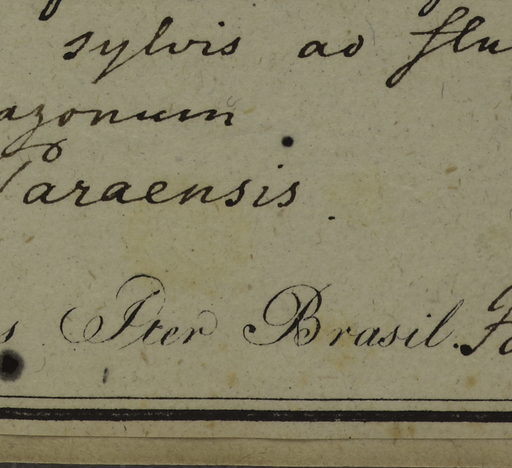 sylvis ad flu
azonum
Paraensis.
s Iter Brasil.